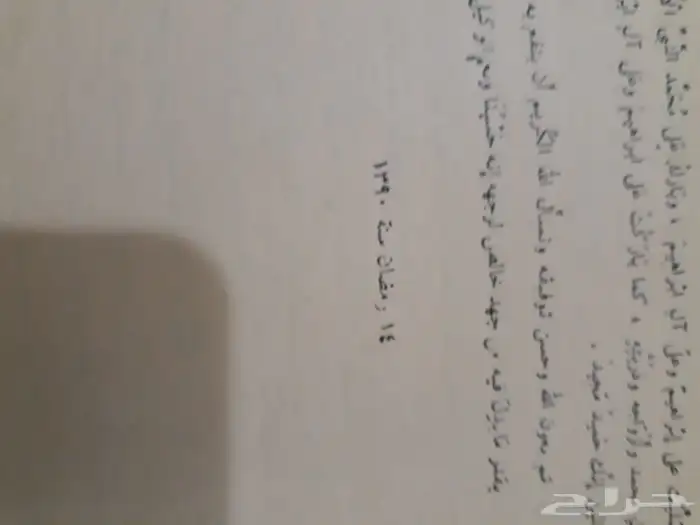 على إبراهيم وعلى آل إبراهيم ، وبارك على محمد النبي
محمد وأزواجه وذريته ، كما باركت على ابراهيم وعلى آل
إنك حميد مجيد .
تم بعون الله وحسن توفيقه ونسأل الله الكريم أن ينفع به
بقدر ما بذلت فيه من جهد خالص لوجهه إنه حسبنا ونعم الوكيل
١٤ رمضان سنة ١٣٩٠
حراج